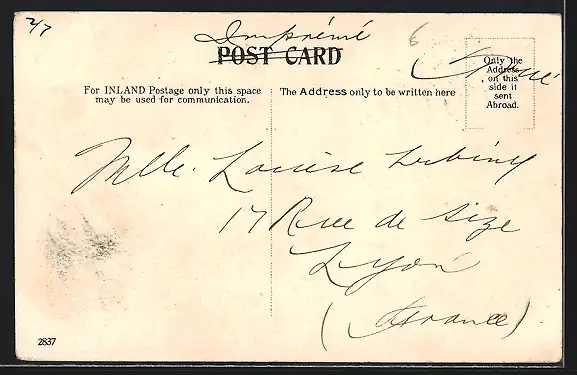 2/7
Imprimé
POST CARD
6
For INLAND Postage only this space
may be used for communication.
The Address only to be written here
Only the
Address
on this
side if
sent
Abroad.
Mlle. Louise
17 Rue de Sèze
Lyon
(France)
2837